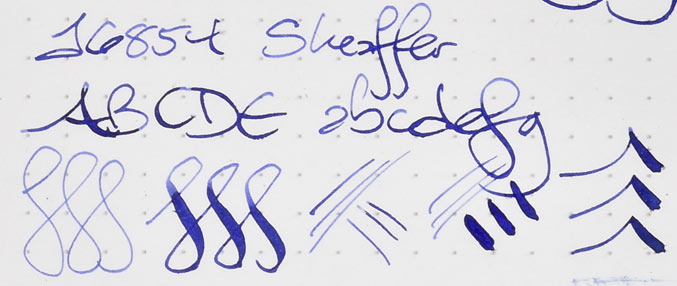 16854 Sheaffer
ABCDE abcdefg